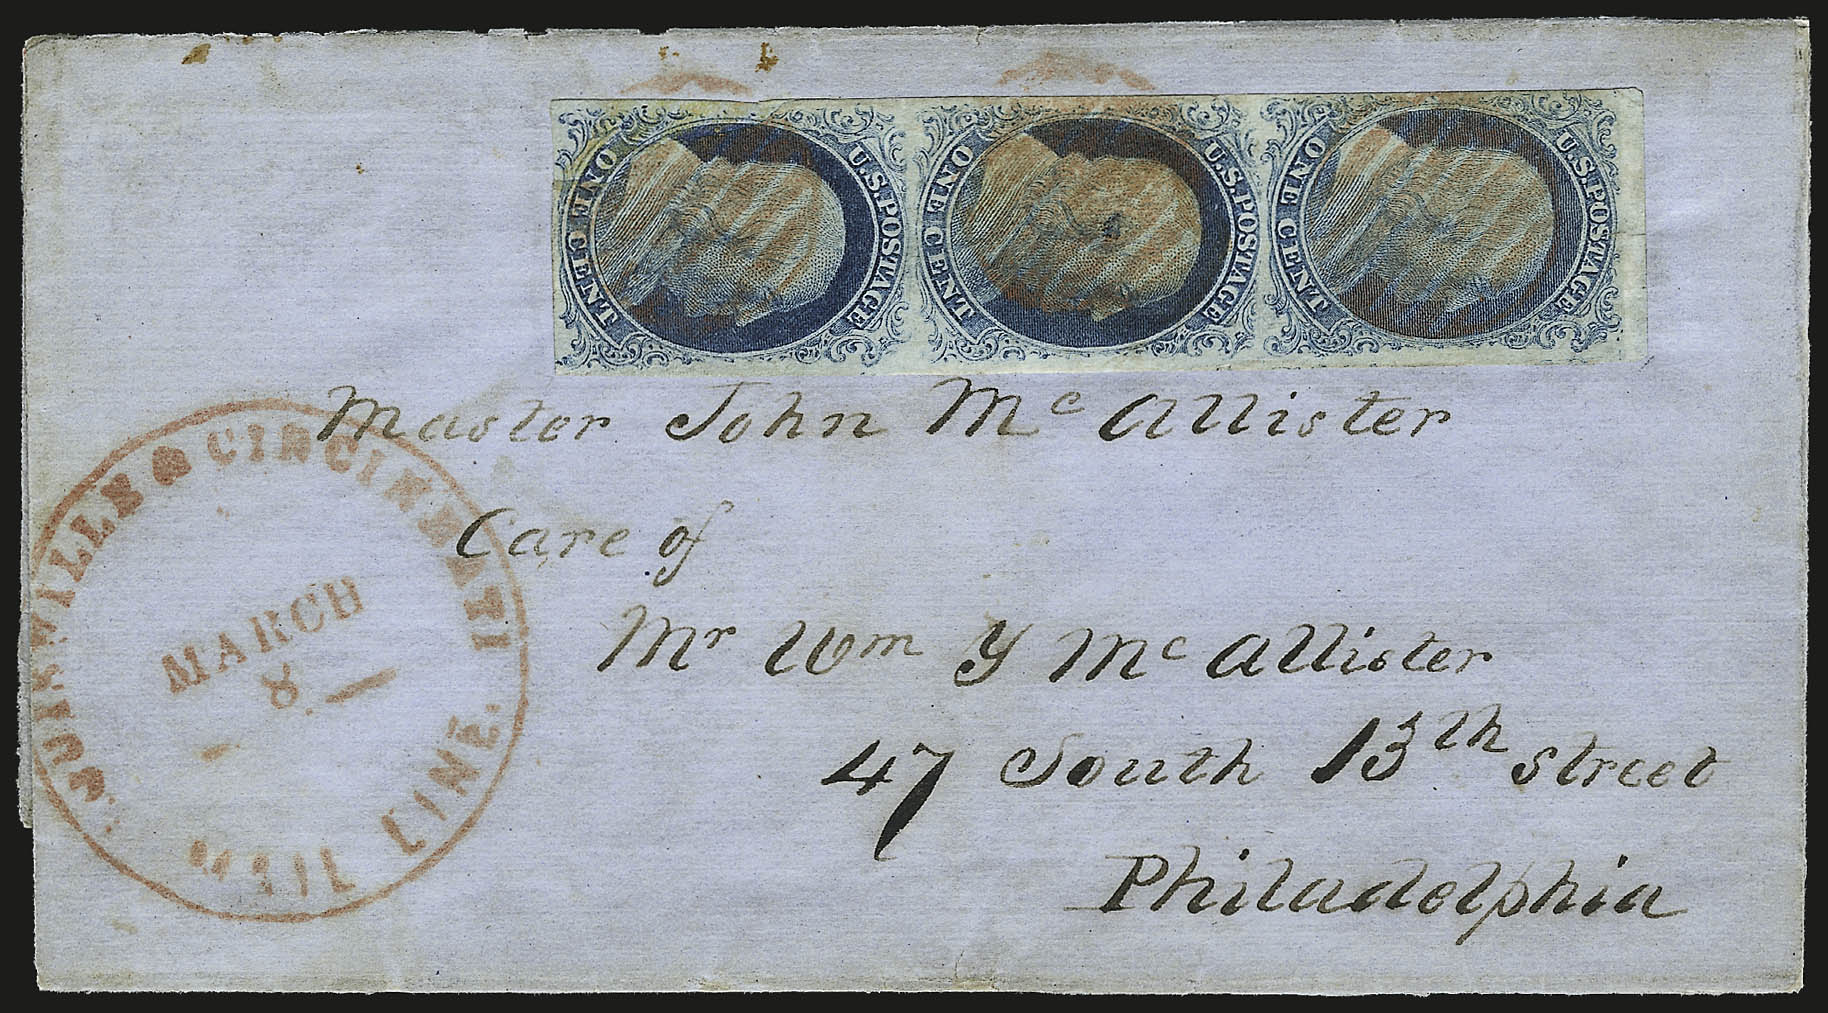 U.S.POSTAGE
ONE CENT
U.S.POSTAGE
ONE CENT
U.S.POSTAGE
ONE CENT
Master John Mc Allister
Care of
Mr Wm Y Mc Allister
47 South 13th street
Philadelphia
LOUISVILLE & CINCINNATI
MAIL LINE.
MARCH
8.